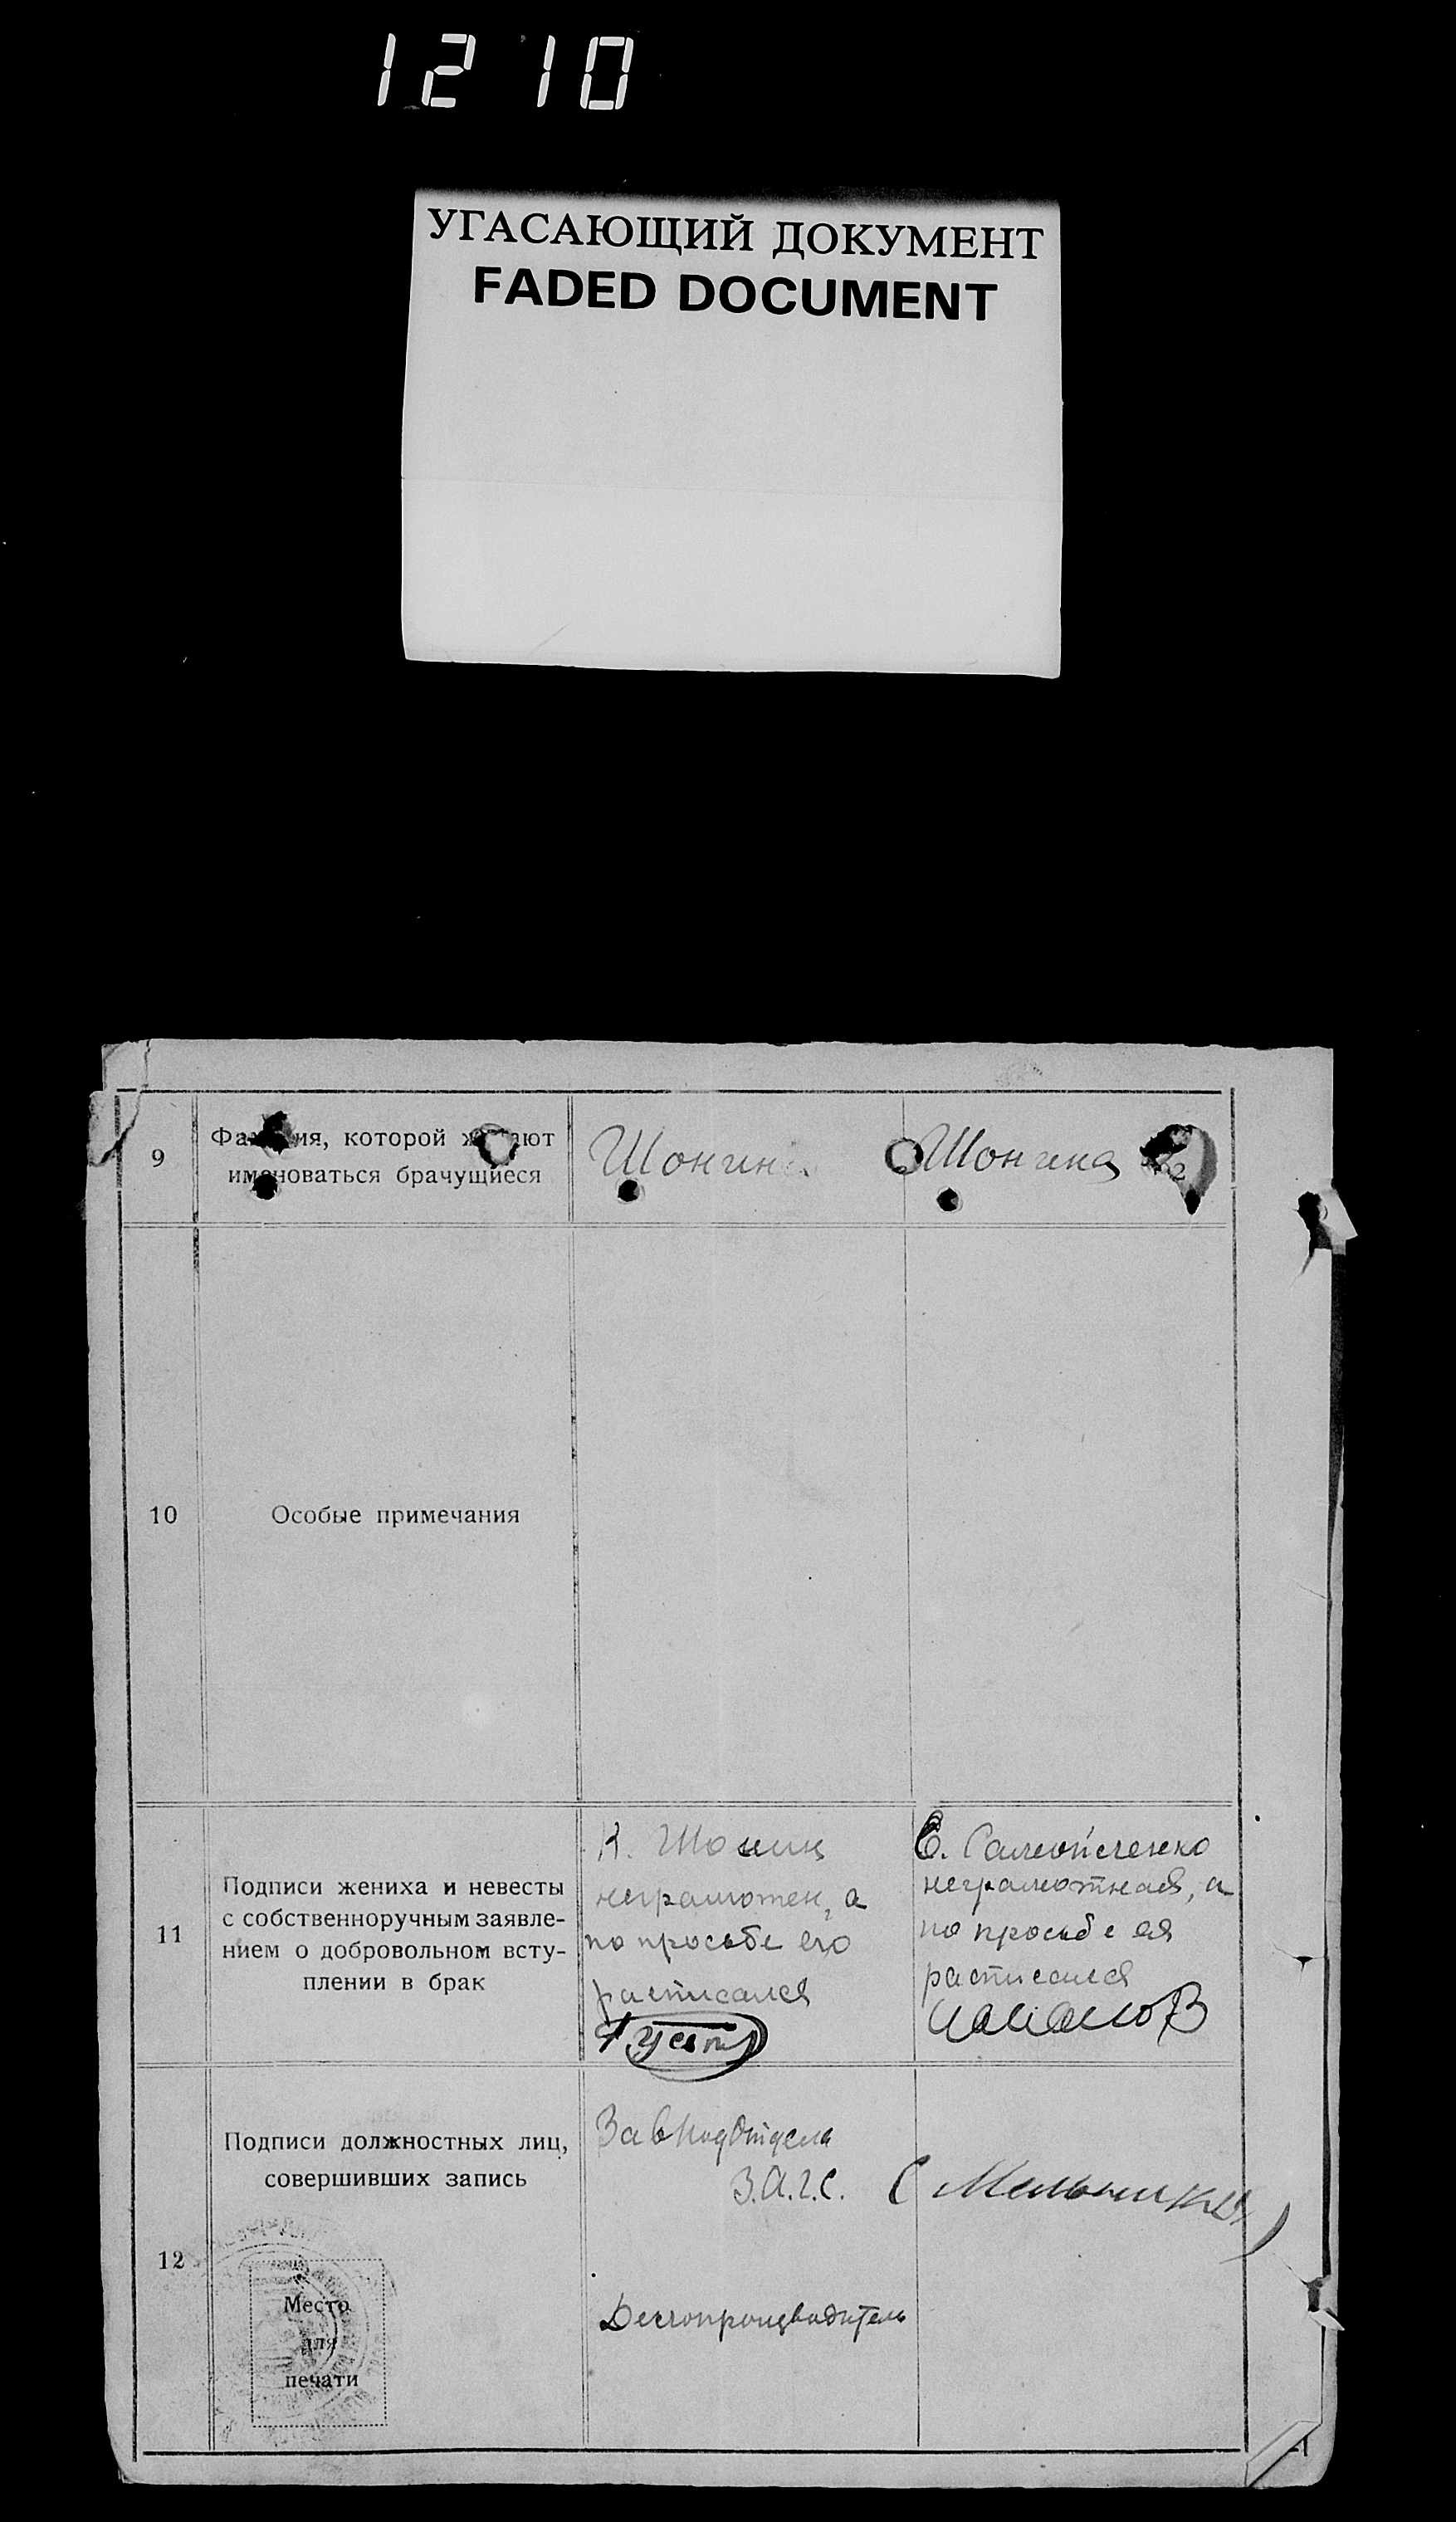 1210
УГАСАЮЩИЙ ДОКУМЕНТ
FADED DOCUMENT
9
Фамилия, которой желают
именоваться брачущиеся
Шонин
Шонина
10
Особые примечания
11
Подписи жениха и невесты
с собственноручным заявле-
нием о добровольном всту-
плении в брак
К. Шонин
неграмотен, а
по просьбе его
расписался
неграмотная, а
по просьбе ея
расписался
12
Подписи должностных лиц,
совершивших запись
Место
для
печати
Зав Подотдела
З.А.Г.С.
Делопроизводитель